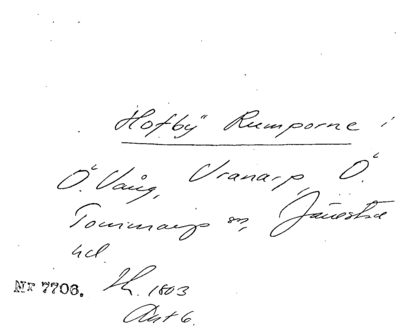 Hofby Rumporne i
Ö. Vång, Vranarp, Ö.
Tommarp sn, Järrestad
hd.
Nr 7706. Sk. 1803
Akt 6.